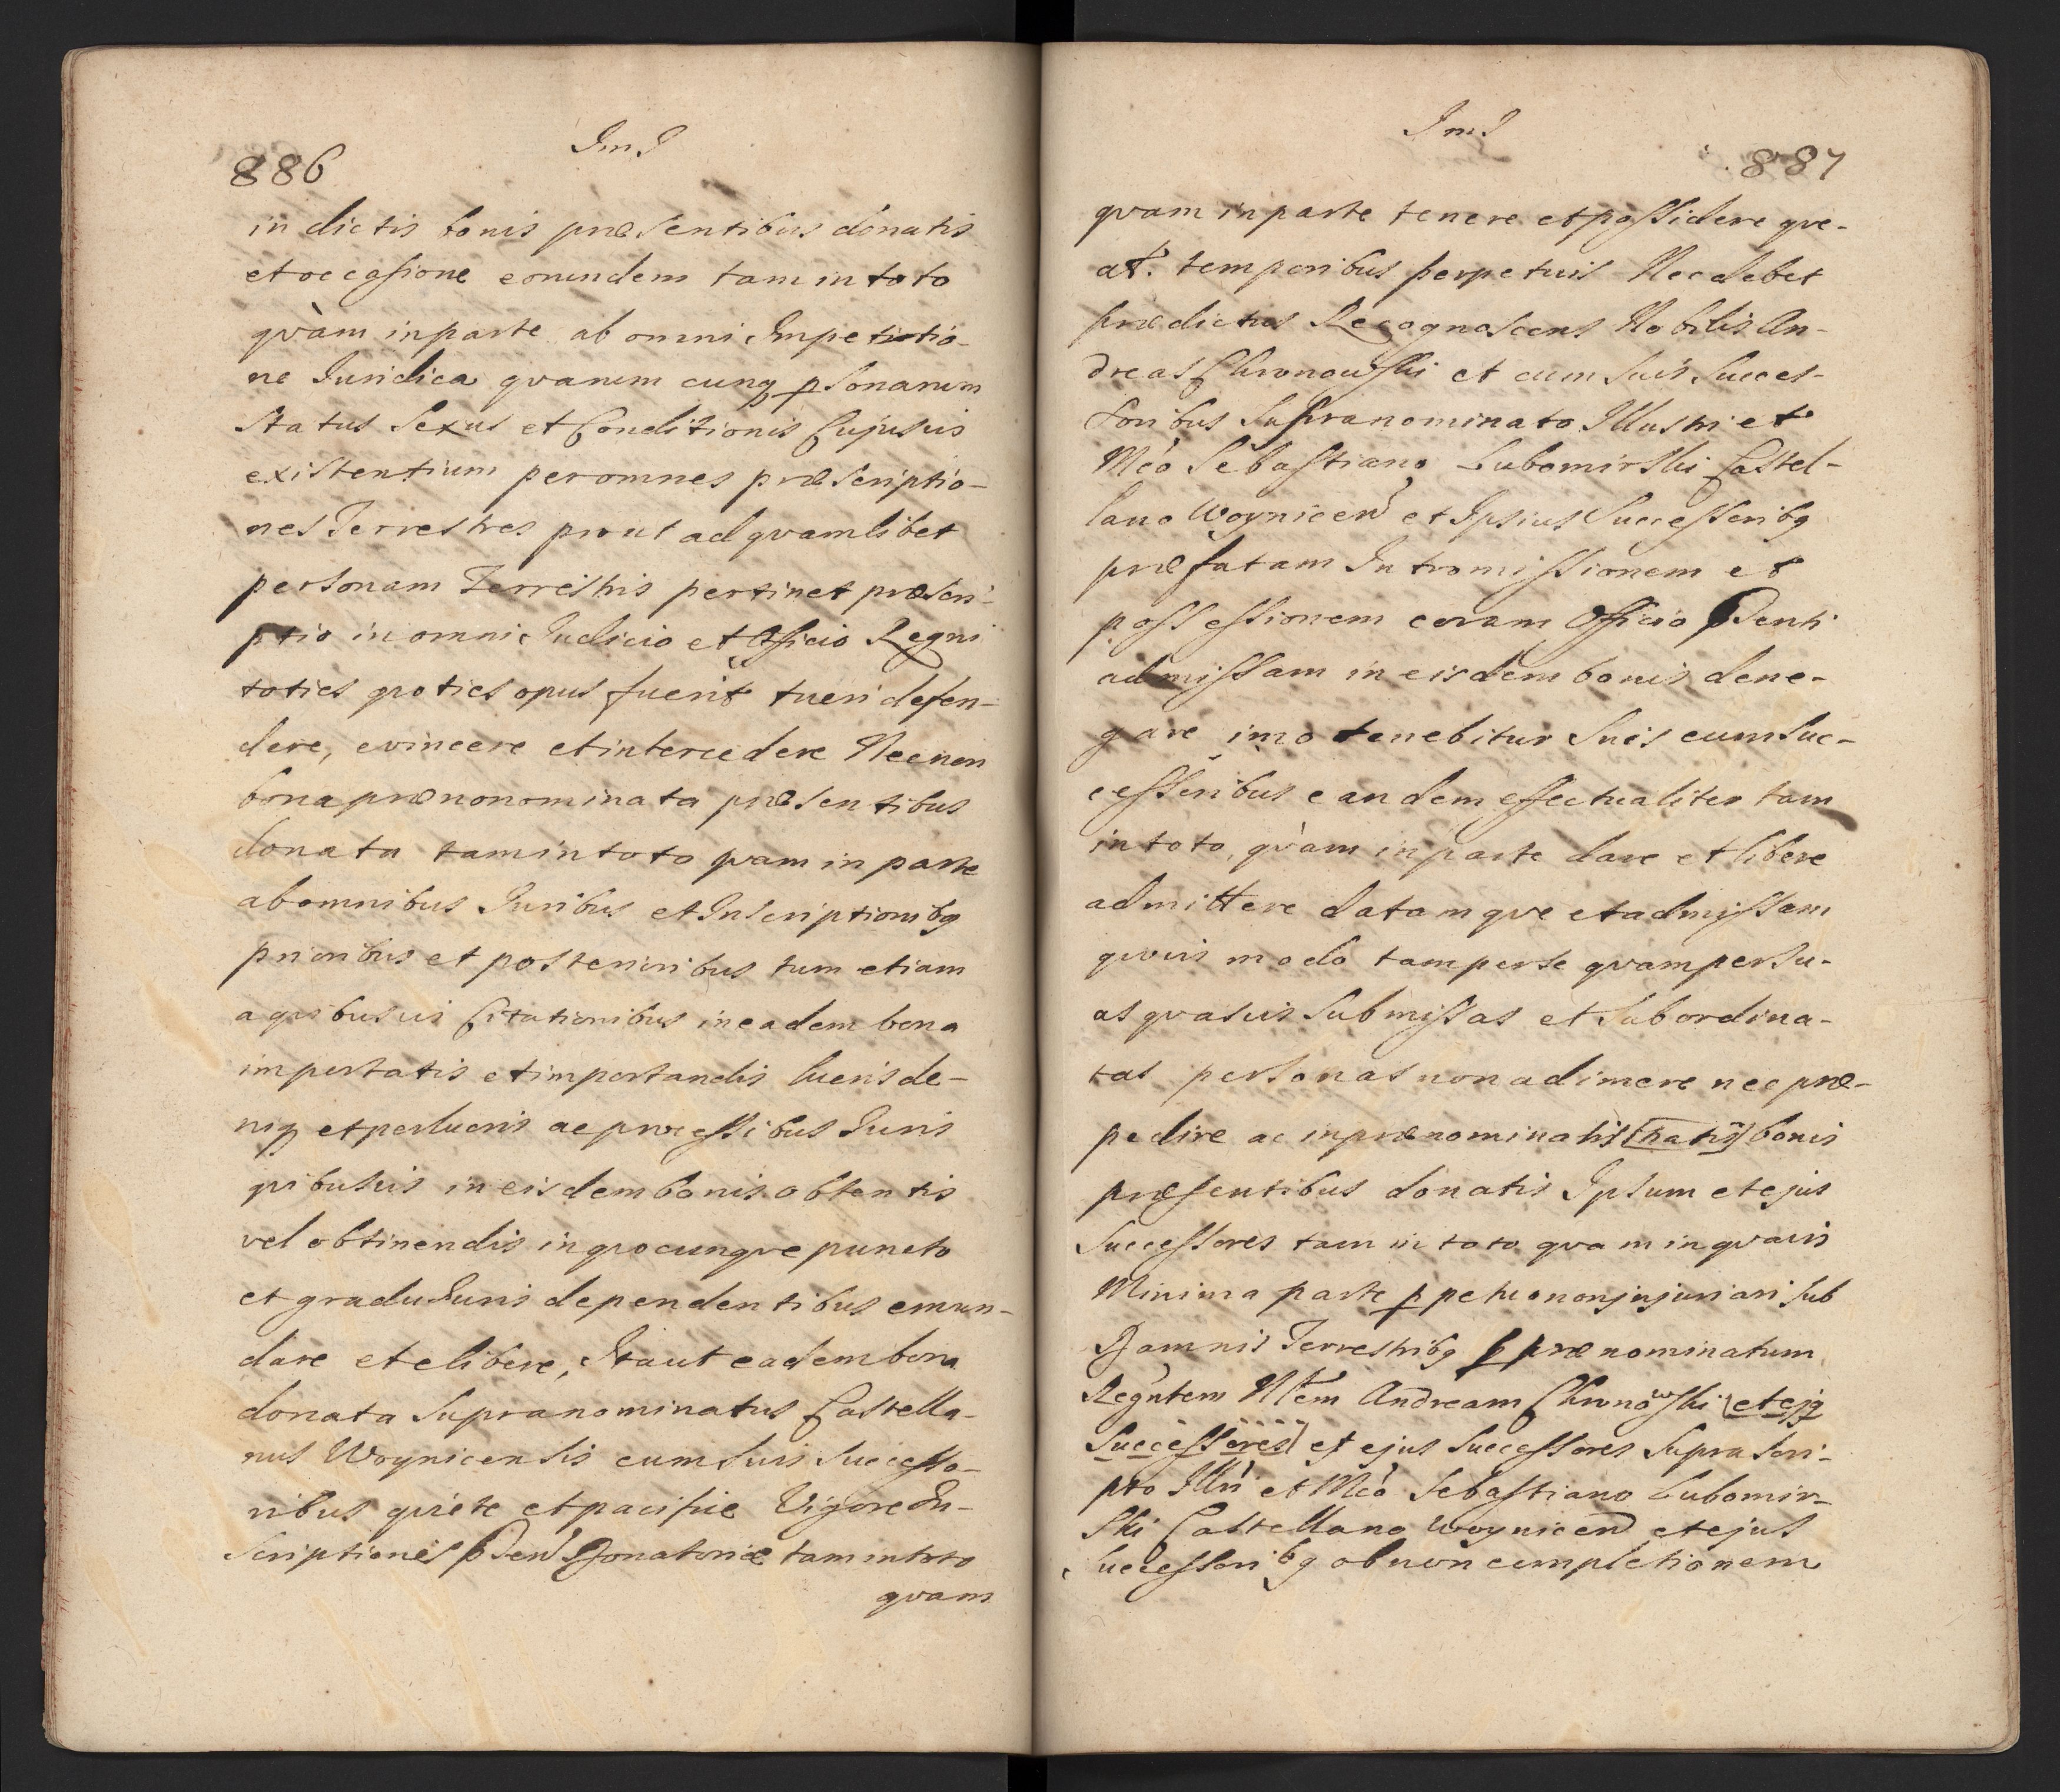 886
JmJ
in dictis bonis præsentibus donatis
et occasione eorundem tam in toto
qvàm in parte ab omni Impetitio-
ne Juridica qvarum cunq̨ psonarum
Status Sexus et Conditionis Cujusvis
existentium per omnes præscriptio-
nes Terrestres prout ad qvamlibet
personam Terrestris pertinet præscri-
ptio in omni Judicio et Officio Regni
toties qvoties opus fuerit tueri defen-
dere, evincere et intercedere Necnon
bona prænonominata præsentibus
donata tam in toto qvam in parte
ab omnibus Juribus et Inscriptionibq
prioribus et posterioribus tum etiam
a qvibusvis Citationibus in eadem bona
importatis et importandis lucris de-
niq̨ et perlucris ac processibus Juris
qvibusvis in eisdem bonis obtentis
vel obtinendis in qvocunqve puncto
et gradu Juris dependentibus emun-
dare et elibere, Ita ut eadem bona
donata Supranominatus Castella-
nus Woynicensis cum Suis Successo-
ribus qviete et pacifice Vigore In-
scriptiones pdsen Donatoriæ tam in toto
qvam
JmJ
887
qvam in parte tenere et possidere qve-
at. temporibus perpetuis Nec debet
prædictus Recognoscens Nobilis An-
dreas Chronowski et cum Suis Succes-
soribus Supranominato Illustri et
Mco Sebastiano Lubomirski Castel-
lano Woynicen et Ipsius Successoribq
præfatam Intromissionem et
possessionem coram Officio pdenti
admissam in eisdem bonis dene-
gare imo tenebitur Suis cum Suc-
cessoribus eandem effectualiter tam
in toto, qvàm in parte dare et libere
admittere datamqve et admissam
qvovis modo tam per se qvam per su-
as qvasvis Submissas et Subordina-
tas personas non adimere nec præ-
pedire ac in prænominatis [natis] bonis
præsentibus donatis Ipsum et ejus
Successores tam in toto qvam in qvavis
Minima parte ppetuo non injuriari Sub
Damnis Terrestribq p prænominatum
Regntem Nlem Andream Chronowski [et ejq
Successores] et ejus Successores Suprascri-
pto Illri et Mco Sebastiano Lubomir-
ski Castellano Woynicen et ejus
Successoribq ob non completionem